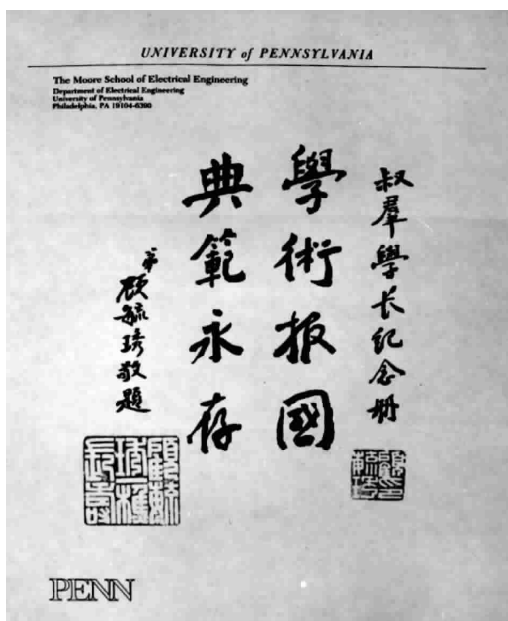 UNIVERSITY of PENNSYLVANIA
The Moore School of Electrical Engineering
Department of Electrical Engineering
University of Pennsylvania
Philadelphia, PA 19104-6390
叔羣學长纪念册
學術报國
典範永存
弟顾毓琇敬題
顧毓琇
顧毓琇一樵長壽
PENN